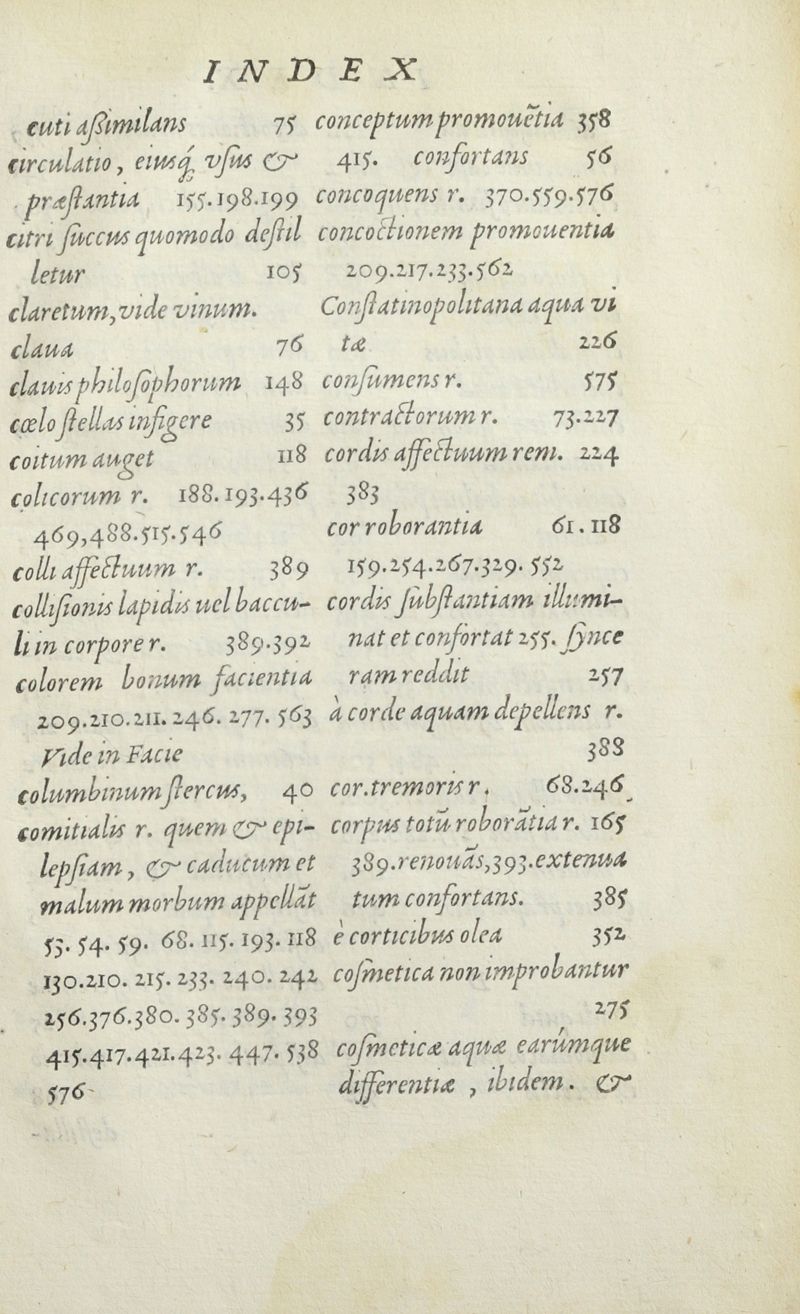 INDEX
cuti aßimilans 75
circulatio, eiusq́ vſus &
præſtantia 155.198.199
citri ſuccus quomodo deſtil
letur 105
claretum, vide vinum.
claua 76
clauis philoſophorum 148
cœlo ſtellas infigere 35
coitum auget 118
colicorum r. 188.193.436
469,488.515.546
colli affectuum r. 389
colliſionis lapidis uel baccu-
li in corpore r. 389.392
colorem bonum facientia
209.210.211.246.277.563
Vide in Facie
columbinum ſtercus, 40
comitialis r. quem & epi-
lepſiam, & caducum et
malum morbum appellãt
53. 54. 59. 68. 115. 193. 118
130.210. 215. 233. 240. 242
256.376.380. 385. 389. 393
415.417.421.423. 447. 538
576
conceptum promouẽtia 358
415. confortans 56
concoquens r. 370.559.576
concoctionem promouentia
209.217.233.562
Conſtatinopolitana aqua vi
tæ 226
conſumens r. 575
contractorum r. 73.227
cordis affectuum rem. 224
383
cor roborantia 61.118
159.254.267.329. 552
cordis ſubſtantiam illumi-
nat et confortat 255. ſynce
ram reddit 257
à corde aquam depellens r.
388
cor.tremoris r. 68.246
corpus totũ roborãtia r. 165
389.renouãs,393.extenua
tum confortans. 385
è corticibus olea 352
coſmetica non improbantur
275
coſmeticæ aquæ earúmque
differentiæ , ibidem. &